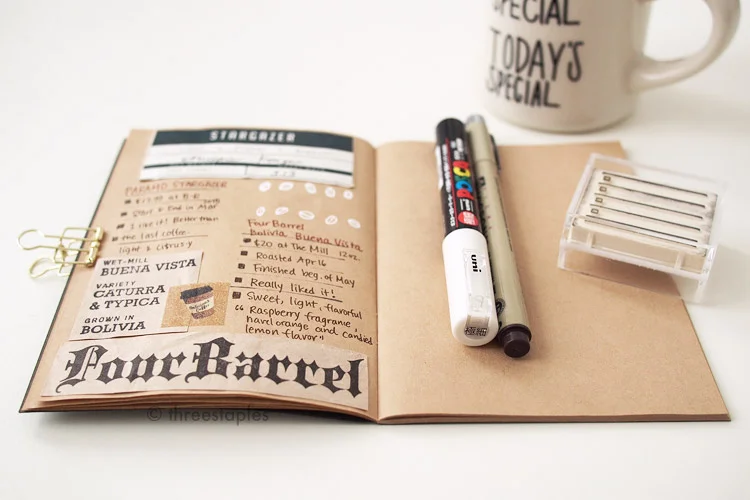 SPECIAL
TODAY'S
SPECIAL
STARGAZER
STARGAZER
at B-R
Start & End in Mar
I like it! Better than
the last coffee.
light & citrus-y
WET-MILL
BUENA VISTA
VARIETY
CATURRA
& TYPICA
GROWN IN
BOLIVIA
Four Barrel
Bolivia Buena Vista
$20 at The Mill 12oz.
Roasted Apr 16
Finished beg. of May
Really liked it!
Sweet, light, flavorful
"Raspberry fragrance,
navel orange and candied
lemon flavor"
Four Barrel
© threestaples
POSCA
uni